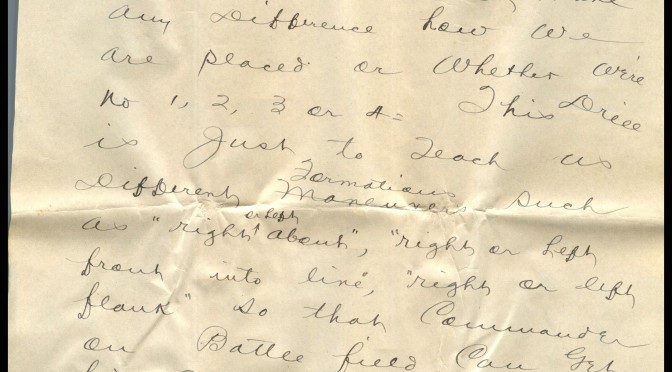 any Difference how we
are placed or whether we're
no 1, 2, 3 or 4 = This Drill
is Just to Teach us
Formations
Different Maneuvers such
or left
as "right about", "right or left
front into line", "right or left
flank" so that Commander
on Battle field Can Get